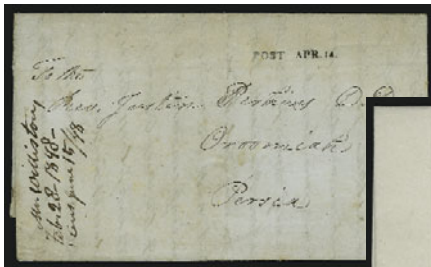 POST APR. 14.
To the
Rev. Justin Perkins D.D.
Oroomiah
Persia
Mrs Williston
Feb. 28 1848 -
June 15/48